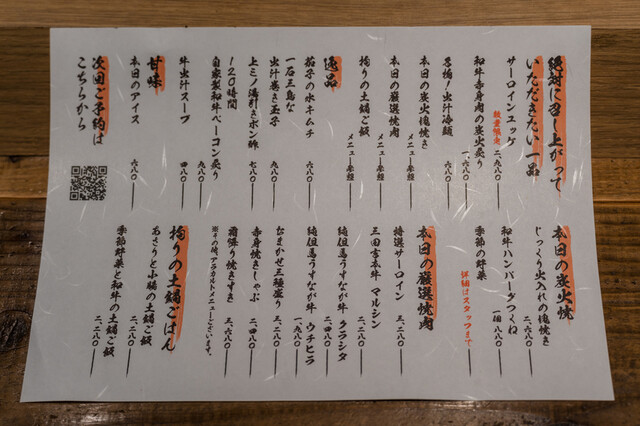 絶対に召し上がって
いただきたい一品
サーロインユッケ
数量限定
二、九八〇
和牛赤身肉の炭火炙り
一、六八〇
名物!出汁冷麺
九八〇
本日の炭火塊焼き
メニュー参照
本日の厳選焼肉
メニュー参照
拘りの土鍋ご飯
メニュー参照
逸品
茄子の水キムチ
六八〇
一石三鳥な
出汁巻き玉子
九八〇
上ミノ湯引きポン酢
七八〇
120時間
自家製和牛ベーコン炙り
九八〇
牛出汁スープ
四八〇
甘味
本日のアイス
六八〇
次回ご予約は
こちらから
本日の炭火焼
じっくり火入れの塊焼き
二、六八〇
和牛ハンバーグつくね
一個 八八〇
季節の野菜
詳細はスタッフまで
本日の厳選焼肉
特選サーロイン
三、二八〇
三田吉本牛 マルシン
二、二八〇
純但馬うすなが牛 クラシタ
二、四八〇
純但馬うすなが牛 ウチヒラ
一、九八〇
たまかせ三種盛り
三、二八〇
赤身焼きしゃぶ
二、四八〇
霜降り焼きすき
三、六八〇
※その他、アラカルトメニューもございます。
拘りの土鍋ごはん
あさりと小腸の土鍋ご飯
二、二八〇
季節野菜と和牛の土鍋ご飯
二、二八〇